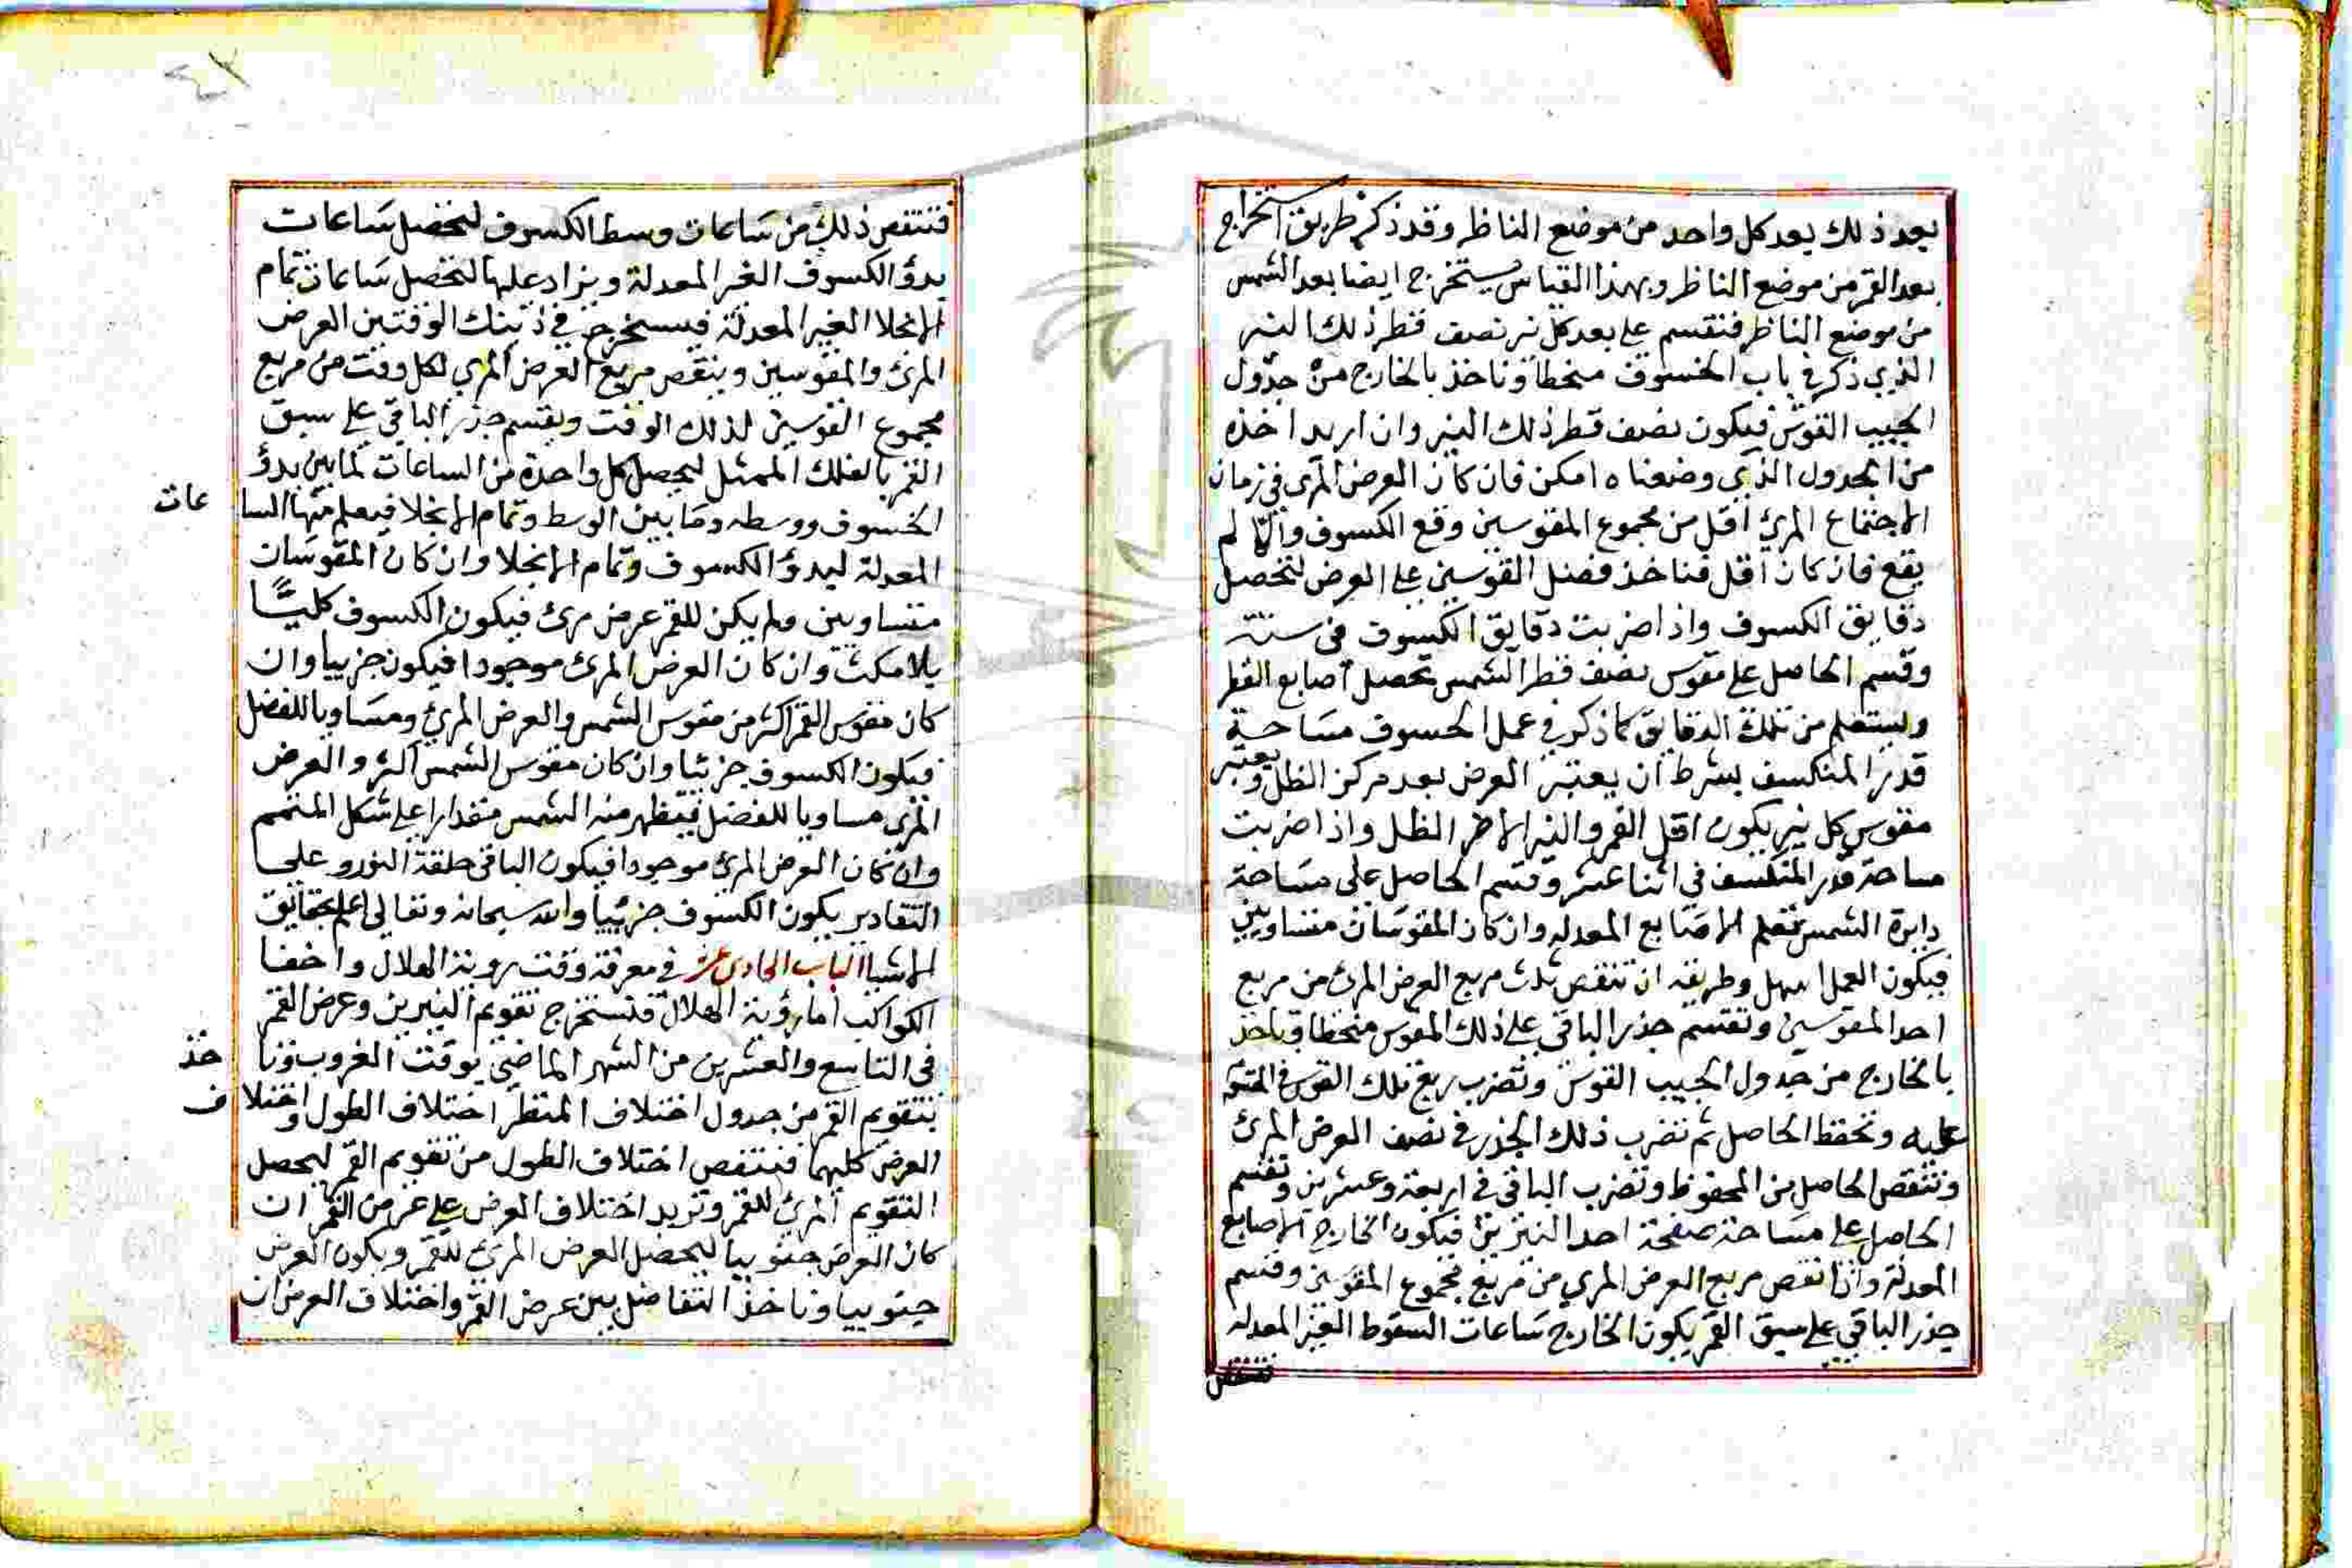 بعد ذلك يعد كل واحد من موضع الناظر وقد ذكر طريق استخراج
بعد القمر من موضع الناظر وبهذا القياس يستخرج ايضا بعد الشمس
من موضع الناظر فنقسم على بعد كل نير نصف قطر ذلك النير
الذي ذكر في باب الخسوف منحطا وناخذ بالخارج من جدول
الجيب القوس فيكون نصف قطر ذلك النير وان اريد اخذه
من الجدول الذي وضعناه امكن فان كان العرض المرى في زمان
الاجتماع المرئ اقل من مجموع المقوسين وقع الكسوف والا لم
يقع فان كان اقل فناخذ فضل القوسين على العرض لتحصل
دقايق الكسوف واذا ضربت دقايق الكسوف في ستة
وقسم الحاصل على مقوس نصف قطر الشمس تحصل اصابع القطر
وليستعلم من تلك الدقايق كما ذكر في عمل الخسوف مساحة
قدر المنكسف بشرط ان يعتبر العرض بعد مركز الظل ويعتبر
مقوس كل نير يكون اقل القمر والنير الاخر الظل واذا ضربت
مساحة قدر المنكسف في اثنا عشر وقسم الحاصل على مساحة
دايرة الشمس تعلم الاصابع المعدله وان كان المقوسان متساويين
فيكون العمل اسهل وطريقه ان تنقص ثلث مربع العرض المرئ من مربع
احد المقوسين وتقسم جذر الباقى على ذلك المقوس منحطا وناخذ
بالخارج من جدول الجيب القوس وتضرب ربع تلك القوس في المقو
عليه وتحفظ الحاصل ثم تضرب ذلك الجذر في نصف العرض المرئ
وتنقص الحاصل من المحفوظ وتضرب الباقى في اربعة وعشرين وتقسم
الحاصل على مساحة صفحة احد النيرين فيكون الخارج الاصابع
المعدلة واذا نقص مربع العرض المري من مربع مجموع المقوسين وقسم
جذر الباقى على سبق القمر يكون الخارج ساعات السقوط الغير المعدله
فتنقص
٤٣
فتنتقص ذلك من ساعات وسط الكسوف لتحصل ساعات
بدؤ الكسوف الغير المعدلة ويزاد عليها لتحصل ساعات تمام
الانجلا الغير المعدلة فيستخرج في ذينك الوقتين العرض
المرئ والمقوسين وينقص مربع العرض المري لكل وقت من مربع
مجموع القوسين لذلك الوقت ويقسم جذر الباقي على سبق
القمر بالفلك الممثل ليحصل كل واحدة من الساعات لما بين بدؤ
الخسوف ووسطه وما بين الوسط وتمام الانجلا فيعلم منها السا عات
المعدلة لبدؤ الكسوف وتمام الانجلا وان كان المقوسان
متساويين ولم يكن للقمر عرض مرئ فيكون الكسوف كليًّا
بلا مكث وان كان العرض المرئ موجودا فيكون جزييا وان
كان مقوس القمر اكثر من مقوس الشمس والعرض المرئ ومساويا للفضل
فيكون الكسوف جزئيا وان كان مقوس الشمس اكثر والعرض
المرى مساويا للفضل فيظهر منه الشمس مقدارا على شكل المتمم
وان كان العرض المرئ موجودا فيكون الباقى حلقة النور وعلى
التقادير يكون الكسوف جزئييا والله سبحانه وتعالى اعلم بحقايق
الاشيا الباب الحادى عشر في معرفة وقت روية الهلال واخفا
الكواكب اما رؤية الهلال فتستخرج تقويم النيرين وعرض القمر
فى التاسع والعشرين من الشهر الماضي بوقت الغروب ونا خذ
بتقويم القمر من جدول اختلاف المنظر اختلاف الطول واختلا ف
العرض كليهما فينتقص اختلاف الطول من تقويم القمر ليحصل
التقويم المرئ للقمر وتزيد اختلاف العرض على عرض القمر ان
كان العرض جنوبيا ليحصل العرض المرئ للقمر ويكون العرض
جنوبيا وناخذ التفاضل بين عرض القمر واختلاف العرض ان